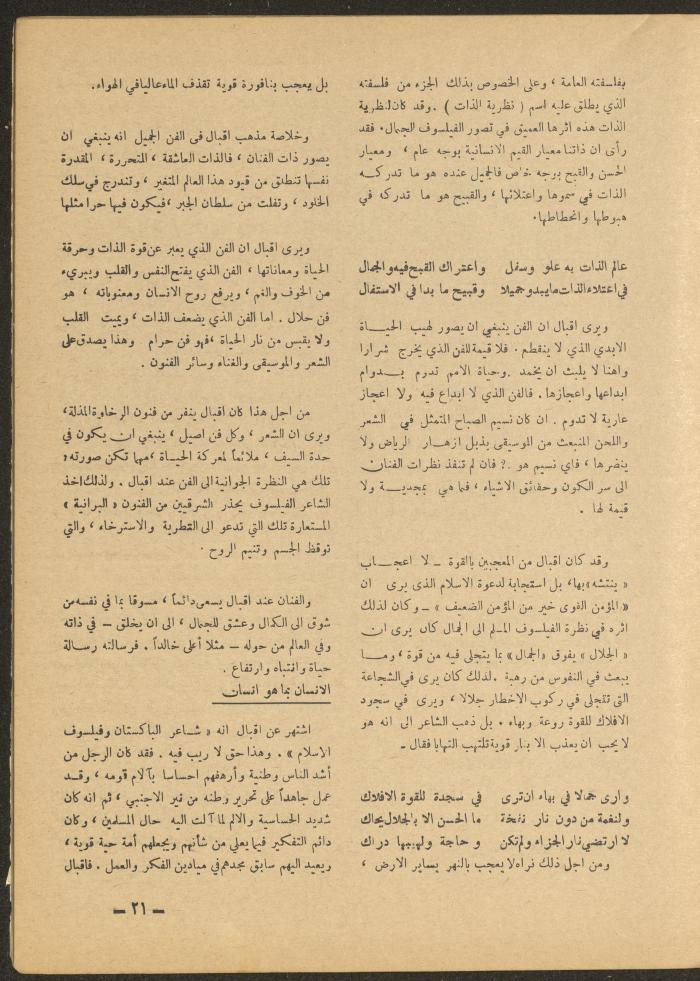 بفلسفته العامة ، وعلى الخصوص بذلك الجزء من فلسفته
الذي يطلق عليه اسم ( نظرية الذات ) . وقد كان لنظرية
الذات هذه اثرها العميق في تصور الفيلسوف للجمال. فقد
رأى ان ذاتنا معيار القيم الانسانية بوجه عام ، ومعيار
الحسن والقبح بوجه خاص فالجميل عنده هو ما تدركه
الذات في سموها واعتلائها ، والقبيح هو ما تدركه في
هبوطها وانحطاطها.
عالم الذات به علو وسفل واعتراك القبح فيه والجمال
في اعتلاء الذات ما يبدو جميلا وقبيح ما بدا في الاستفال
ويرى اقبال ان الفن ينبغي ان يصور لهيب الحيـاة
الابدي الذي لا ينقطع . فلا قيمة للفن الذي يخرج شرارا
واهنا لا يلبث ان يخمد . وحياة الامم تدوم بـدوام
ابداعها واعجازها . فالفن الذي لا ابداع فيه ولا اعجاز
عارية لا تدوم . ان كان نسيم الصباح المتمثل في الشعر
واللحن المنبعث من الموسيقى يذبل ازهـار الرياض ولا
ينضرها ، فاي نسيم هو ؟. فان لم تنفذ نظرات الفنان
الى سر الكون وحقائق الاشياء ، فما هي بمجديـة ولا
قيمة لها .
وقد كان اقبال من المعجبين بالقوة ــ لا اعجـاب
« ينتشه » بها، بل استجابة لدعوة الاسلام الذى يرى ان
« المؤمن القوى خير من المؤمن الضعيف » ــ وكان لذلك
اثره في نظرة الفيلسوف المسلم الى الجمال كان يرى ان
« الجلال » يفوق «الجمال» بما يتجلى فيه من قوة ، ومـا
يبعث في النفوس من رهبة . لذلك كان يرى في الشجاعة
التى تتجلى في ركوب الاخطار جلالا ، ويرى في سجود
الافلاك للقوة روعة وبهاء . بل ذهب الشاعر الى انه هو
لا يحب ان يعذب الا بنار قوية تلتهب التهابا فقال ــ
وارى جمالا في بهاء ان ترى في سجدة للقوة الافلاك
ولنغمة من دون نار نفخة ما الحسن الا بالجلال يحاك
لا ارتضي نار الجزاء ولم تكن وحاجة ولهيبها دراك
ومن اجل ذلك نراه لا يعجب بالنهر يساير الارض ،
بل يعجب بنافورة قوية تقذف الماء عاليا في الهواء.
وخلاصة مذهب اقبال فى الفن الجميل انه ينبغي ان
يصور ذات الفنان ، فالذات العاشقة ، المتحررة ، المقدرة
نفسها تنطلق من قيود هذا العالم المتغير ، وتندرج في سلك
الخلود ، وتفلت من سلطان الجبر ، فيكون فيها حرا مثلها
ويرى اقبال ان الفن الذي يعبر عن قوة الذات وحرقة
الحياة ومعاناتها ، الفن الذي يفتح النفس والقلب ويبريء
من الخوف والغم ، ويرفع روح الانسان ومعنوياته ، هو
فن حلال . اما الفن الذي يضعف الذات ، ويميت القلب
ولا يقبس من نار الحياة ، فهو فن حرام وهذا يصدق على
الشعر والموسيقى والغناء وسائر الفنون .
من اجل هذا كان اقبال ينفر من فنون الرخاوة المذلة ،
ويرى ان الشعر ، وكل فن اصيل ، ينبغي ان يكون في
حدة السيف ، ملائماً لمعركة الحياة ، مهما تكن صورته ؛
تلك هي النظرة الجوانية الى الفن عند اقبال . ولذلك اخذ
الشاعر الفيلسوف يحذر الشرقيين من الفنون « البرانية »
المستعارة تلك التي تدعو الى الفطرية والاسترخاء ، والتي
توقظ الجسم وتنيم الروح .
والفنان عند اقبال يسعى دائماً ، مسوقا بما في نفسه من
شوق الى الكمال وعشق للجمال ، الى ان يخلق ــ في ذاته
وفي العالم من حوله ــ مثلا أعلى خالداً . فرسالته رسالة
حياة وانتباه وارتفاع .
الانسان بما هو انسان
اشتهر عن اقبال انه « شـاعر الباكستان وفيلسوف
الاسلام » . وهذا حق لا ريب فيه . فقد كان الرجل من
أشد الناس وطنية وأرهفهم احساسا بآلام قومه ، وقـد
عمل جاهداً على تحرير وطنه من نير الاجنبي ، ثم انه كان
شديد الحساسية والالم لما آلت اليه حال المسلمين ، وكان
دائم التفكير فيما يعلي من شأنهم ويجعلهم أمة حية قوية ،
ويعيد اليهم سابق مجدهم في ميادين الفكر والعمل . فاقبال
ــ ٢١ ــ